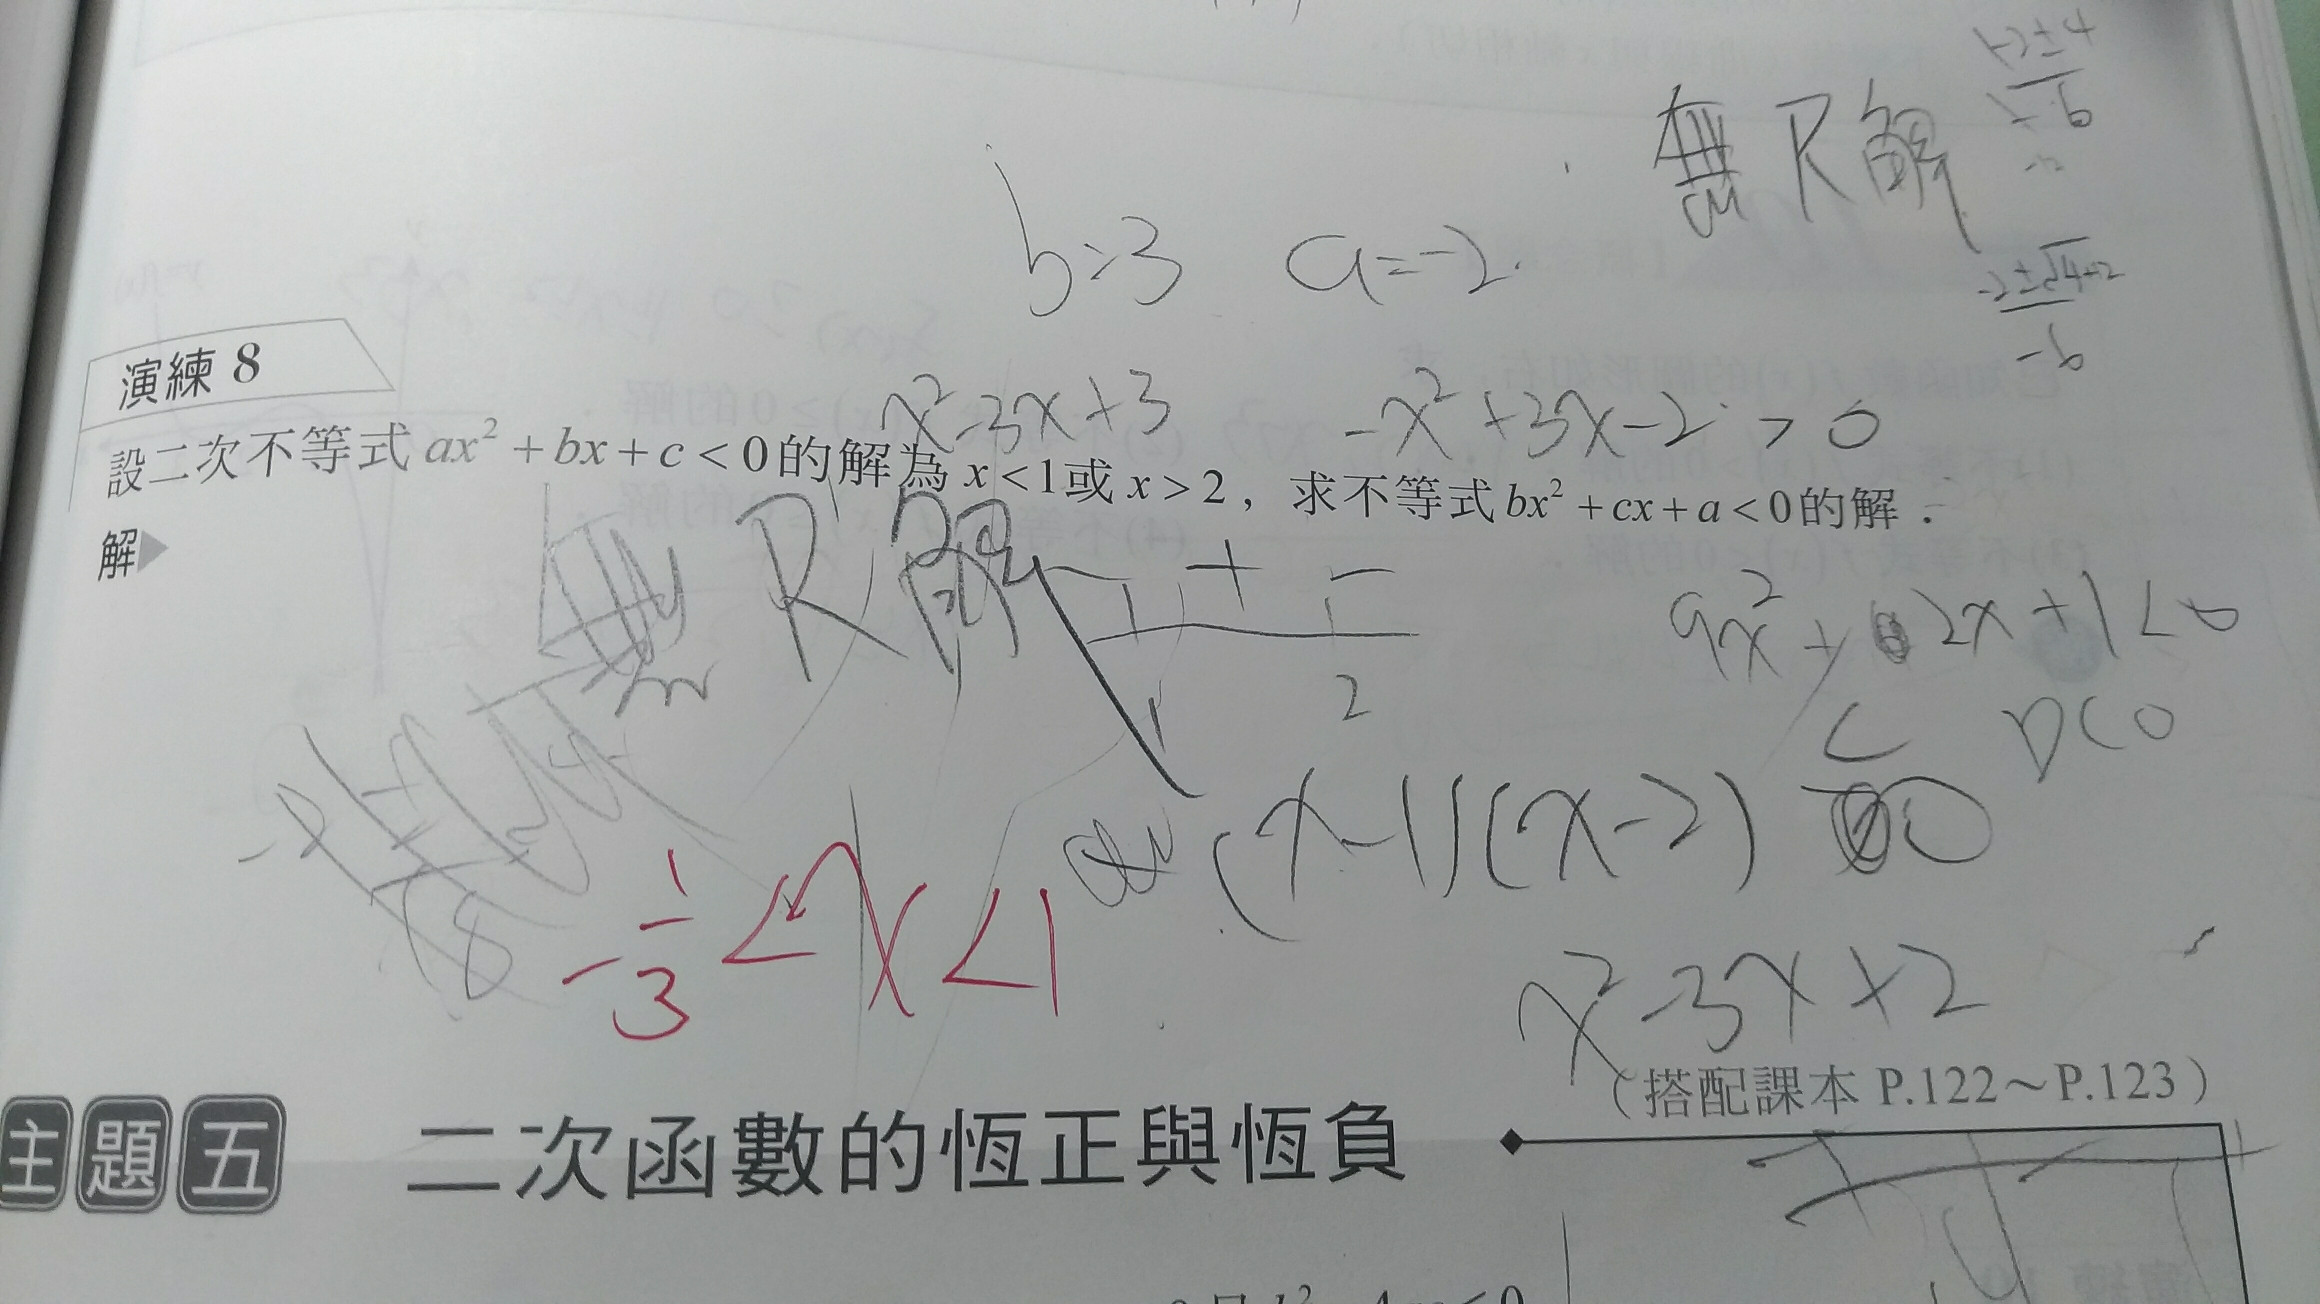 -2±4
-6
無R解
b=3 a=-2
-2±√4+2
-6
演練 8
x²-3x+3 -x²+3x-2>0
設二次不等式 ax²+bx+c<0的解為 x<1或 x>2，求不等式 bx²+cx+a<0的解．
解▶
無R解
- + -
1 2
9x²+2x+1<0
D<0
(x-1)(x-2)<0
-1/3<x<1
x²-3x+2
（搭配課本 P.122～P.123）
主題五 二次函數的恆正與恆負